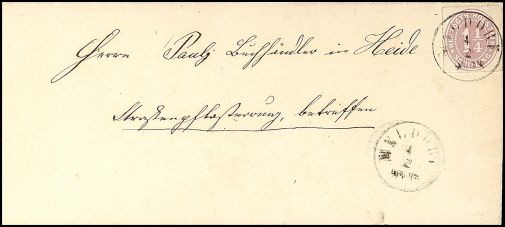 Herrn Pauly Buchhändler in Heide
Straßenpflasterung, betreffen
MELDORF
4
2
MELDORF
4
2
1 1/4